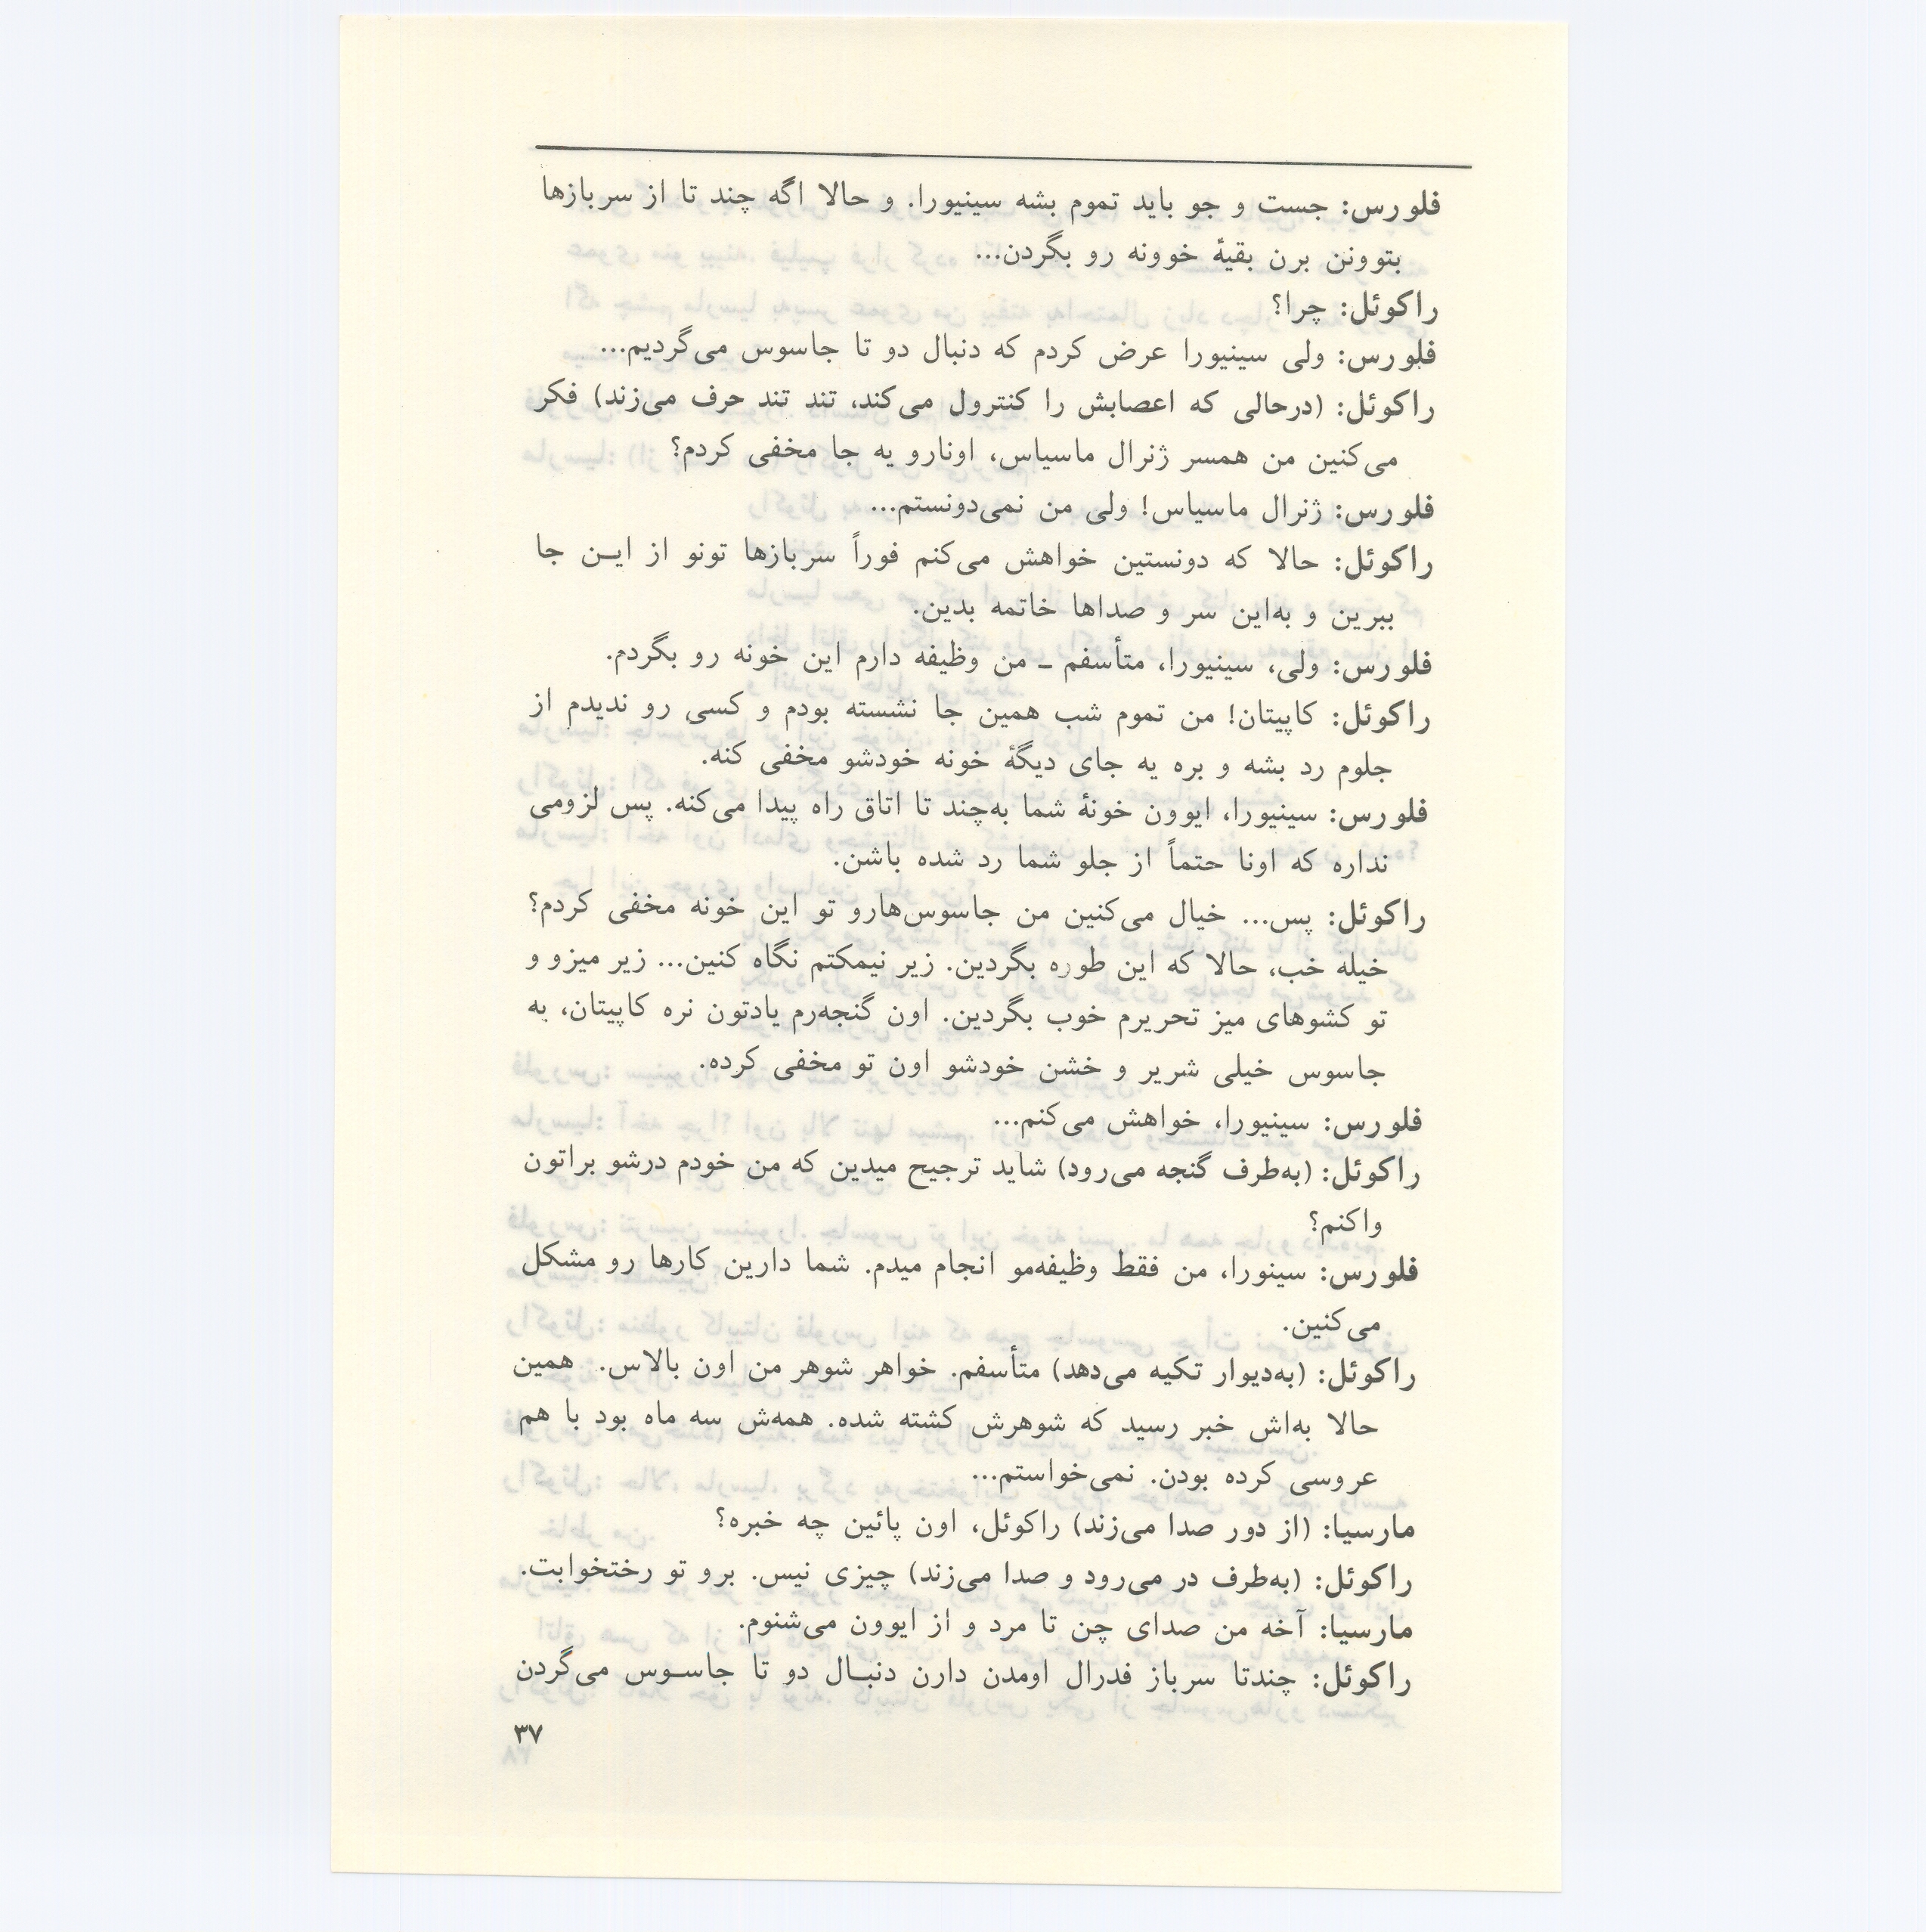 فلورس: جست و جو باید تموم بشه سینیورا. و حالا اگه چند تا از سربازها
بتوونن برن بقیهٔ خوونه رو بگردن...
راکوئل: چرا؟
فلورس: ولی سینیورا عرض کردم که دنبال دو تا جاسوس می‌گردیم...
راکوئل: (درحالی که اعصابش را کنترول می‌کند، تند تند حرف می‌زند) فکر
می‌کنین من همسر ژنرال ماسیاس، اونارو یه جا مخفی کردم؟
فلورس: ژنرال ماسیاس! ولی من نمی‌دونستم...
راکوئل: حالا که دونستین خواهش می‌کنم فوراً سربازها تونو از ایـن جا
ببرین و به‌این سر و صداها خاتمه بدین.
فلورس: ولی، سینیورا، متأسفم ـ من وظیفه دارم این خونه رو بگردم.
راکوئل: کاپیتان! من تموم شب همین جا نشسته بودم و کسی رو ندیدم از
جلوم رد بشه و بره یه جای دیگهٔ خونه خودشو مخفی کنه.
فلورس: سینیورا، ایوون خونهٔ شما به‌چند تا اتاق راه پیدا می‌کنه. پس لزومی
نداره که اونا حتماً از جلو شما رد شده باشن.
راکوئل: پس... خیال می‌کنین من جاسوس‌هارو تو این خونه مخفی کردم؟
خیله خب، حالا که این طوره بگردین. زیر نیمکتم نگاه کنین... زیر میزو و
تو کشوهای میز تحریرم خوب بگردین. اون گنجه‌رم یادتون نره کاپیتان، یه
جاسوس خیلی شریر و خشن خودشو اون تو مخفی کرده.
فلورس: سینیورا، خواهش می‌کنم...
راکوئل: (به‌طرف گنجه می‌رود) شاید ترجیح میدین که من خودم درشو براتون
واکنم؟
فلورس: سینورا، من فقط وظیفه‌مو انجام میدم. شما دارین کارها رو مشکل
می‌کنین.
راکوئل: (به‌دیوار تکیه می‌دهد) متأسفم. خواهر شوهر من اون بالاس. همین
حالا به‌اش خبر رسید که شوهرش کشته شده. همه‌ش سه ماه بود با هم
عروسی کرده بودن. نمی‌خواستم...
مارسیا: (از دور صدا می‌زند) راکوئل، اون پائین چه خبره؟
راکوئل: (به‌طرف در می‌رود و صدا می‌زند) چیزی نیس. برو تو رختخوابت.
مارسیا: آخه من صدای چن تا مرد و از ایوون می‌شنوم.
راکوئل: چندتا سرباز فدرال اومدن دارن دنبـال دو تا جاسـوس می‌گردن
۳۷